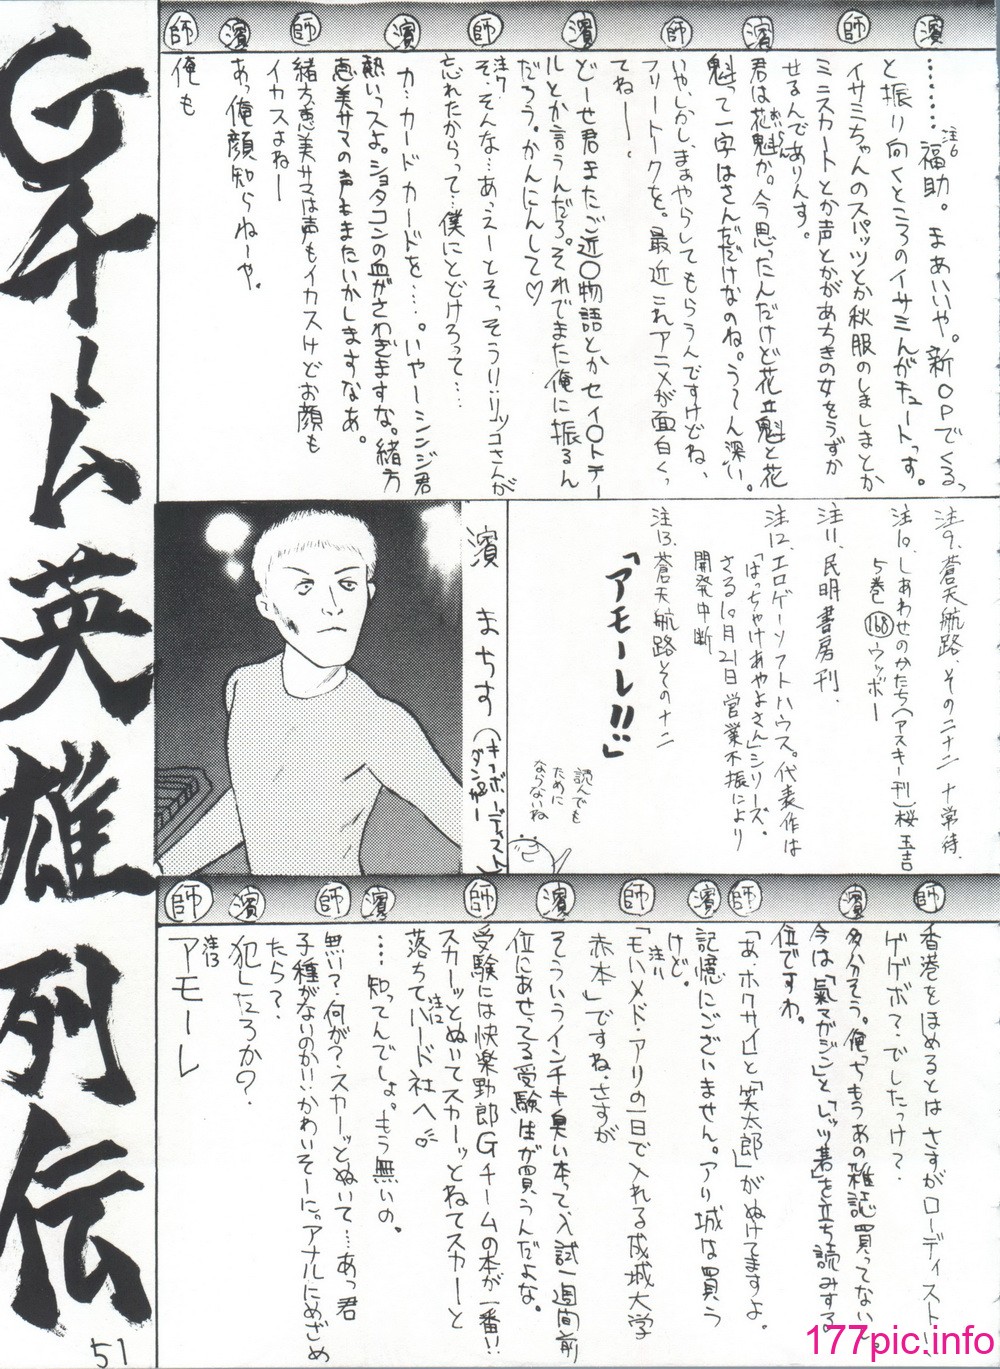 Gチーム英雄列伝
濱
………注6福助。まあいいや。新OPでくるっ
と振り向くところのイサミんがキュートっす。
師
イサミちゃんのスパッツとか秋服のしましまとか
ミニスカートとか声とかがあちきの女をうずか
せるんでありんす。
濱
君は花魁か。今思ったんだけど花魁と花
おいらん
魁って一字ほさんだだけなのね。うーん深い。
師
いや、しかし、まぁやらしてもらうんですけどね、
フリートークを。最近これアニメが面白くっ
てねー。
濱
どーせ君またご近〇物語とかセイ〇トテー
ルとか言うんだろ。それでまた俺に振るん
だろう。かんにんして♡
師
注7
そ・そんな…あっえーとそっそう!!リツコさんが
忘れたからって…僕にとどけろって…
濱
カ・カードカードを…。いやーシンジ君
熱いっスよ。ショタコンの血がさわぎますな。緒方
恵美サマの声もまたいかしますなあ。
師
緒方恵美サマは声もイカスけどお顔も
イカスよねー
濱
あっ俺顔知らねーや。
師
俺も
注9、蒼天航路、その二十二 十常侍、
注10、しあわせのかたち(アスキー刊)桜玉吉
5巻 168 ウッボー
注11、民明書房刊
注12、エロゲーソフトハウス。代表作は
「はっちゃけあやよさん」シリーズ。
さる10月21日営業不振により
開発中断
注13、蒼天航路その十二
「アモーレ!!」
読んでも
ために
ならないね
濱 まちす(キーボーディスト&ダンサー)
師
香港をほめるとはさすがローディスト!!
ゲゲボ?でしたっけ?
濱
多分そう。俺っちもうあの雑誌買ってないし
今は「氣マガジン」と「レッツ碁」を立ち読みする
位ですわ。
師
「あ・ホクサイ」と「笑太郎」がぬけてますよ。
濱
記憶にございません。アリ城は買う
けど。
師
注11
「モハメド・アリの一日で入れる成城大学
赤本」ですね。さすが
濱
そういうインチキ臭い本って、入試一週間前
位にあせってる受験生が買うんだよな。
師
受験には快楽野郎Gチームの本が一番!!
スカーッとぬいてスカーッとねてスカーと
落ちて注12ハード社へ
濱
…知ってんでしょ。もう無いの。
師
無い?何が?スカーッとぬいて…あっ君
子種がないのかい…かわいそーに。アナルにめざめ
たら?
濱
犯したろか?
師
注13
アモーレ
51
177pic.info